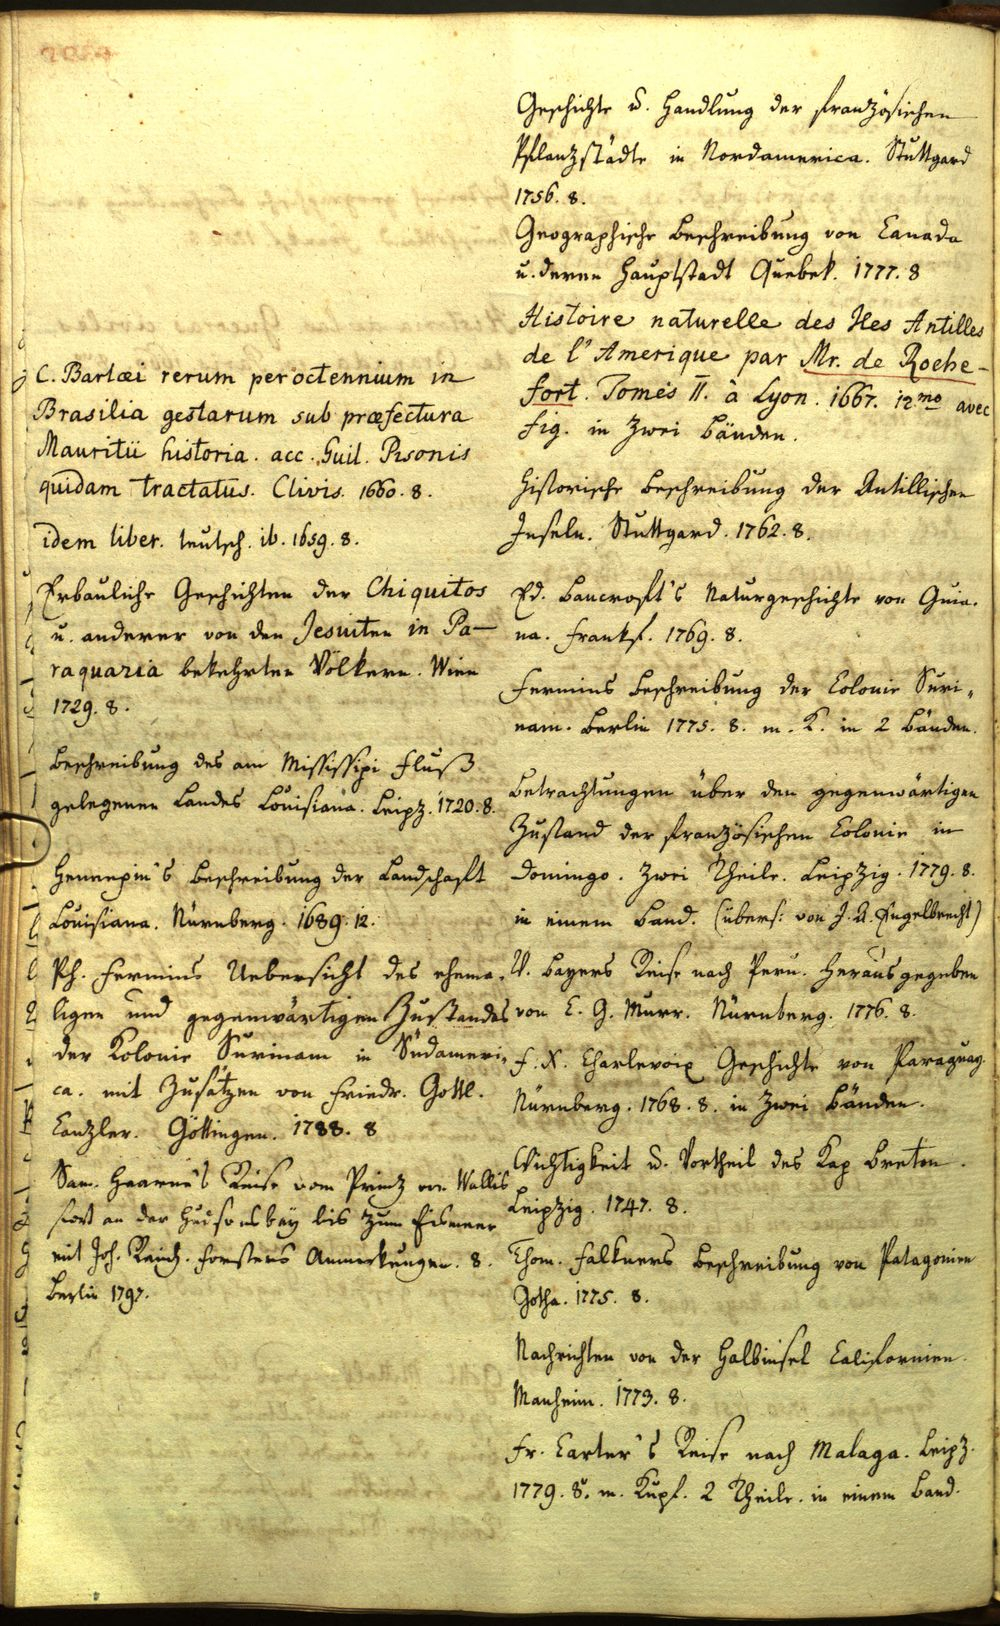 C. Barlæi rerum per octennium in
Brasilia gestarum sub præfectura
Mauritii historia. acc. Guil. Pisonis
quidam tractatus. Clivis. 1660. 8.
idem liber. teutsch. ib. 1659. 8.
Erbauliche Geschichten der Chiquitos
u. anderer von den Jesuiten in Pa-
raquaria bekehrten Völkern. Wien
1729. 8.
Beschreibung des am Mississipi Fluß
gelegenen Landes Louisiana. Leipz. 1720. 8.
Hennepin's Beschreibung der Landschafft
Louisiana. Nürnberg. 1689. 12.
Ph. Fermins Uebersicht des ehema-
ligen und gegenwärtigen Zustandes
der Kolonie Surinam in Südameri-
ca. mit Zusätzen von Friedr. Gottl.
Canzler. Göttingen. 1788. 8
Sam. Hearne's Reise vom Prinz von Wallis
fort an der Hudsonsbay bis zum Eismeer
mit Joh. Reinh. Forsters Anmerkungen. 8.
Berlin 1797.
Geschichte u. Handlung der französischen
Pflanzstädte in Nordamerica. Stuttgard
1756. 8.
Geographische Beschreibung von Canada
u. deren Hauptstadt Quebek. 1777. 8
Histoire naturelle des Iles Antilles
de l'Amerique par Mr. de Roche-
fort. Tomes II. à Lyon. 1667. 12mo avec
fig. in zwei Bänden.
Historische Beschreibung der Antillischen
Inseln. Stuttgard. 1762. 8.
Ed. Bancroft's Naturgeschichte von Guia-
na. Frankf. 1769. 8.
Fermins Beschreibung der Colonie Suri-
nam. Berlin 1775. 8. m. K. in 2 Bänden.
Betrachtungen über den gegenwärtigen
Zustand der französischen Colonie in
Domingo. Zwei Theile. Leipzig. 1779. 8.
in einem Band. (übers: von J. A. Engelbrecht)
W. Bayers Reise nach Peru. Herausgegeben
von C. G. Murr. Nürnberg. 1776. 8.
F. X. Charlevoix Geschichte von Paraguay.
Nürnberg. 1768. 8. in zwei Bänden.
Wichtigkeit u. Vortheil des Kap Breton.
Leipzig. 1747. 8.
Thom. Falkners Beschreibung von Patagonien
Gotha. 1775. 8.
Nachrichten von der Halbinsel Californien.
Manheim. 1773. 8.
Fr. Carter's Reise nach Malaga. Leipz.
1779. 8. m. Kupf. 2 Theile. in einem Band.